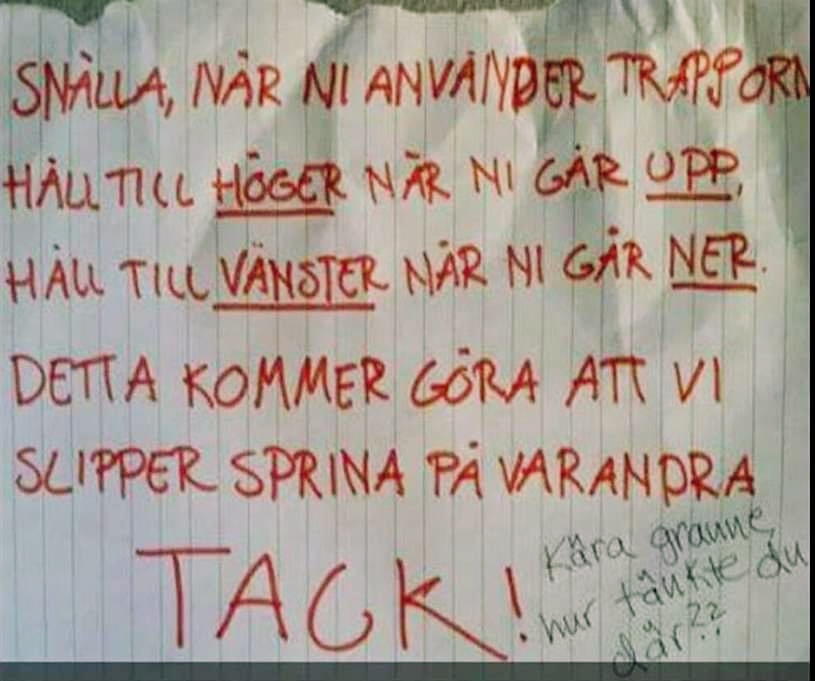 SNÄLLA, NÄR NI ANVÄNDER TRAPPORN
HÅLL TILL HÖGER NÄR NI GÅR UPP,
HÅLL TILL VÄNSTER NÄR NI GÅR NER.
DETTA KOMMER GÖRA ATT VI
SLIPPER SPRINA PÅ VARANDRA
TACK!
Kära granne,
hur tänkte du
där??